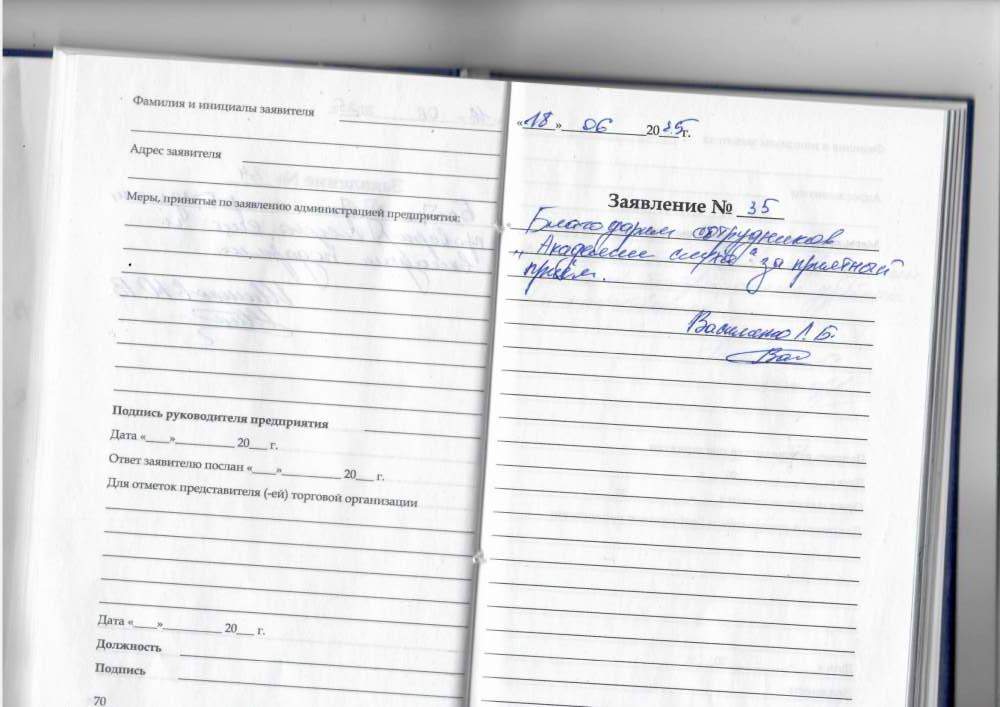 Фамилия и инициалы заявителя
Адрес заявителя
Меры, принятые по заявлению администрацией предприятия:
Подпись руководителя предприятия
Дата «____»__________ 20___ г.
Ответ заявителю послан «____»__________ 20___ г.
Для отметок представителя (-ей) торговой организации
Дата «____»__________ 20___ г.
Должность
Подпись
70
«18» 06 2025г.
Заявление № 35
Благодарим сотрудников
„Академии слуха" за приятный
приём.
Василенко Л. Б.